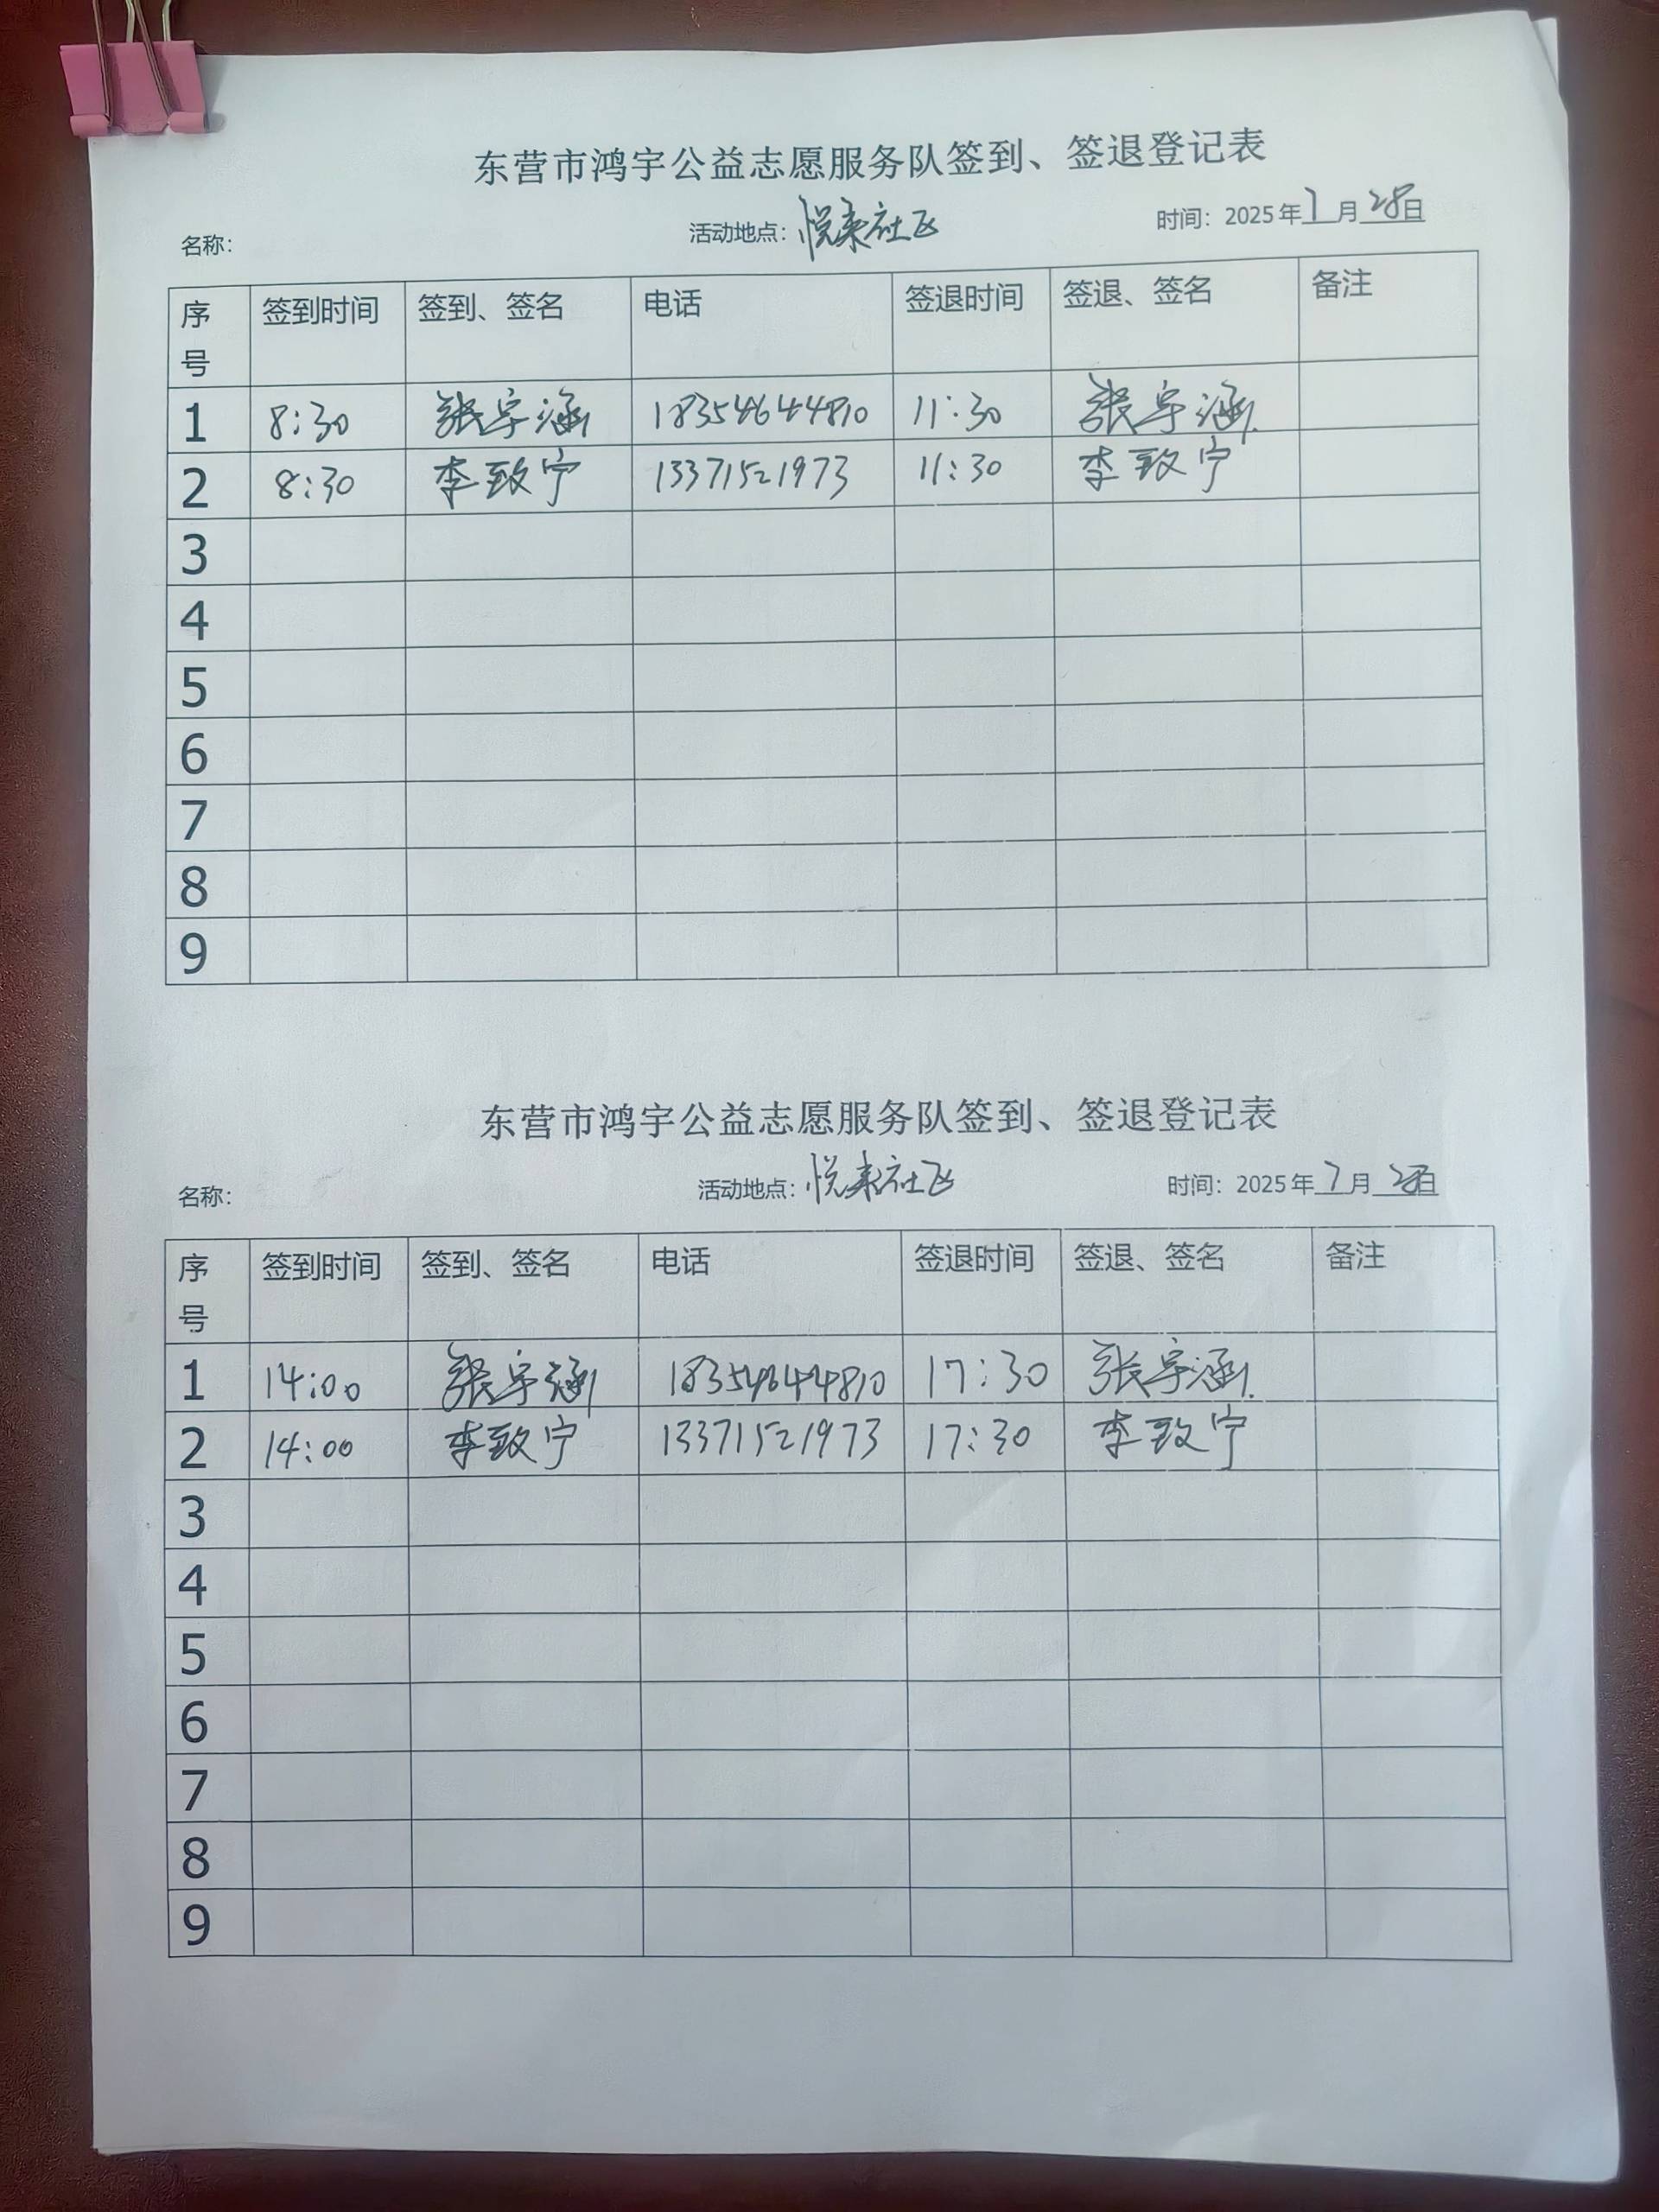 东营市鸿宇公益志愿服务队签到、签退登记表
名称： 活动地点：悦来社区 时间：2025年7月28日
序号 签到时间 签到、签名 电话 签退时间 签退、签名 备注
1 8:30 张宇涵 18354644810 11:30 张宇涵
2 8:30 李致宁 13371521973 11:30 李致宁
3
4
5
6
7
8
9
东营市鸿宇公益志愿服务队签到、签退登记表
名称： 活动地点：悦来社区 时间：2025年7月28日
序号 签到时间 签到、签名 电话 签退时间 签退、签名 备注
1 14:00 张宇涵 18354644810 17:30 张宇涵
2 14:00 李致宁 13371521973 17:30 李致宁
3
4
5
6
7
8
9